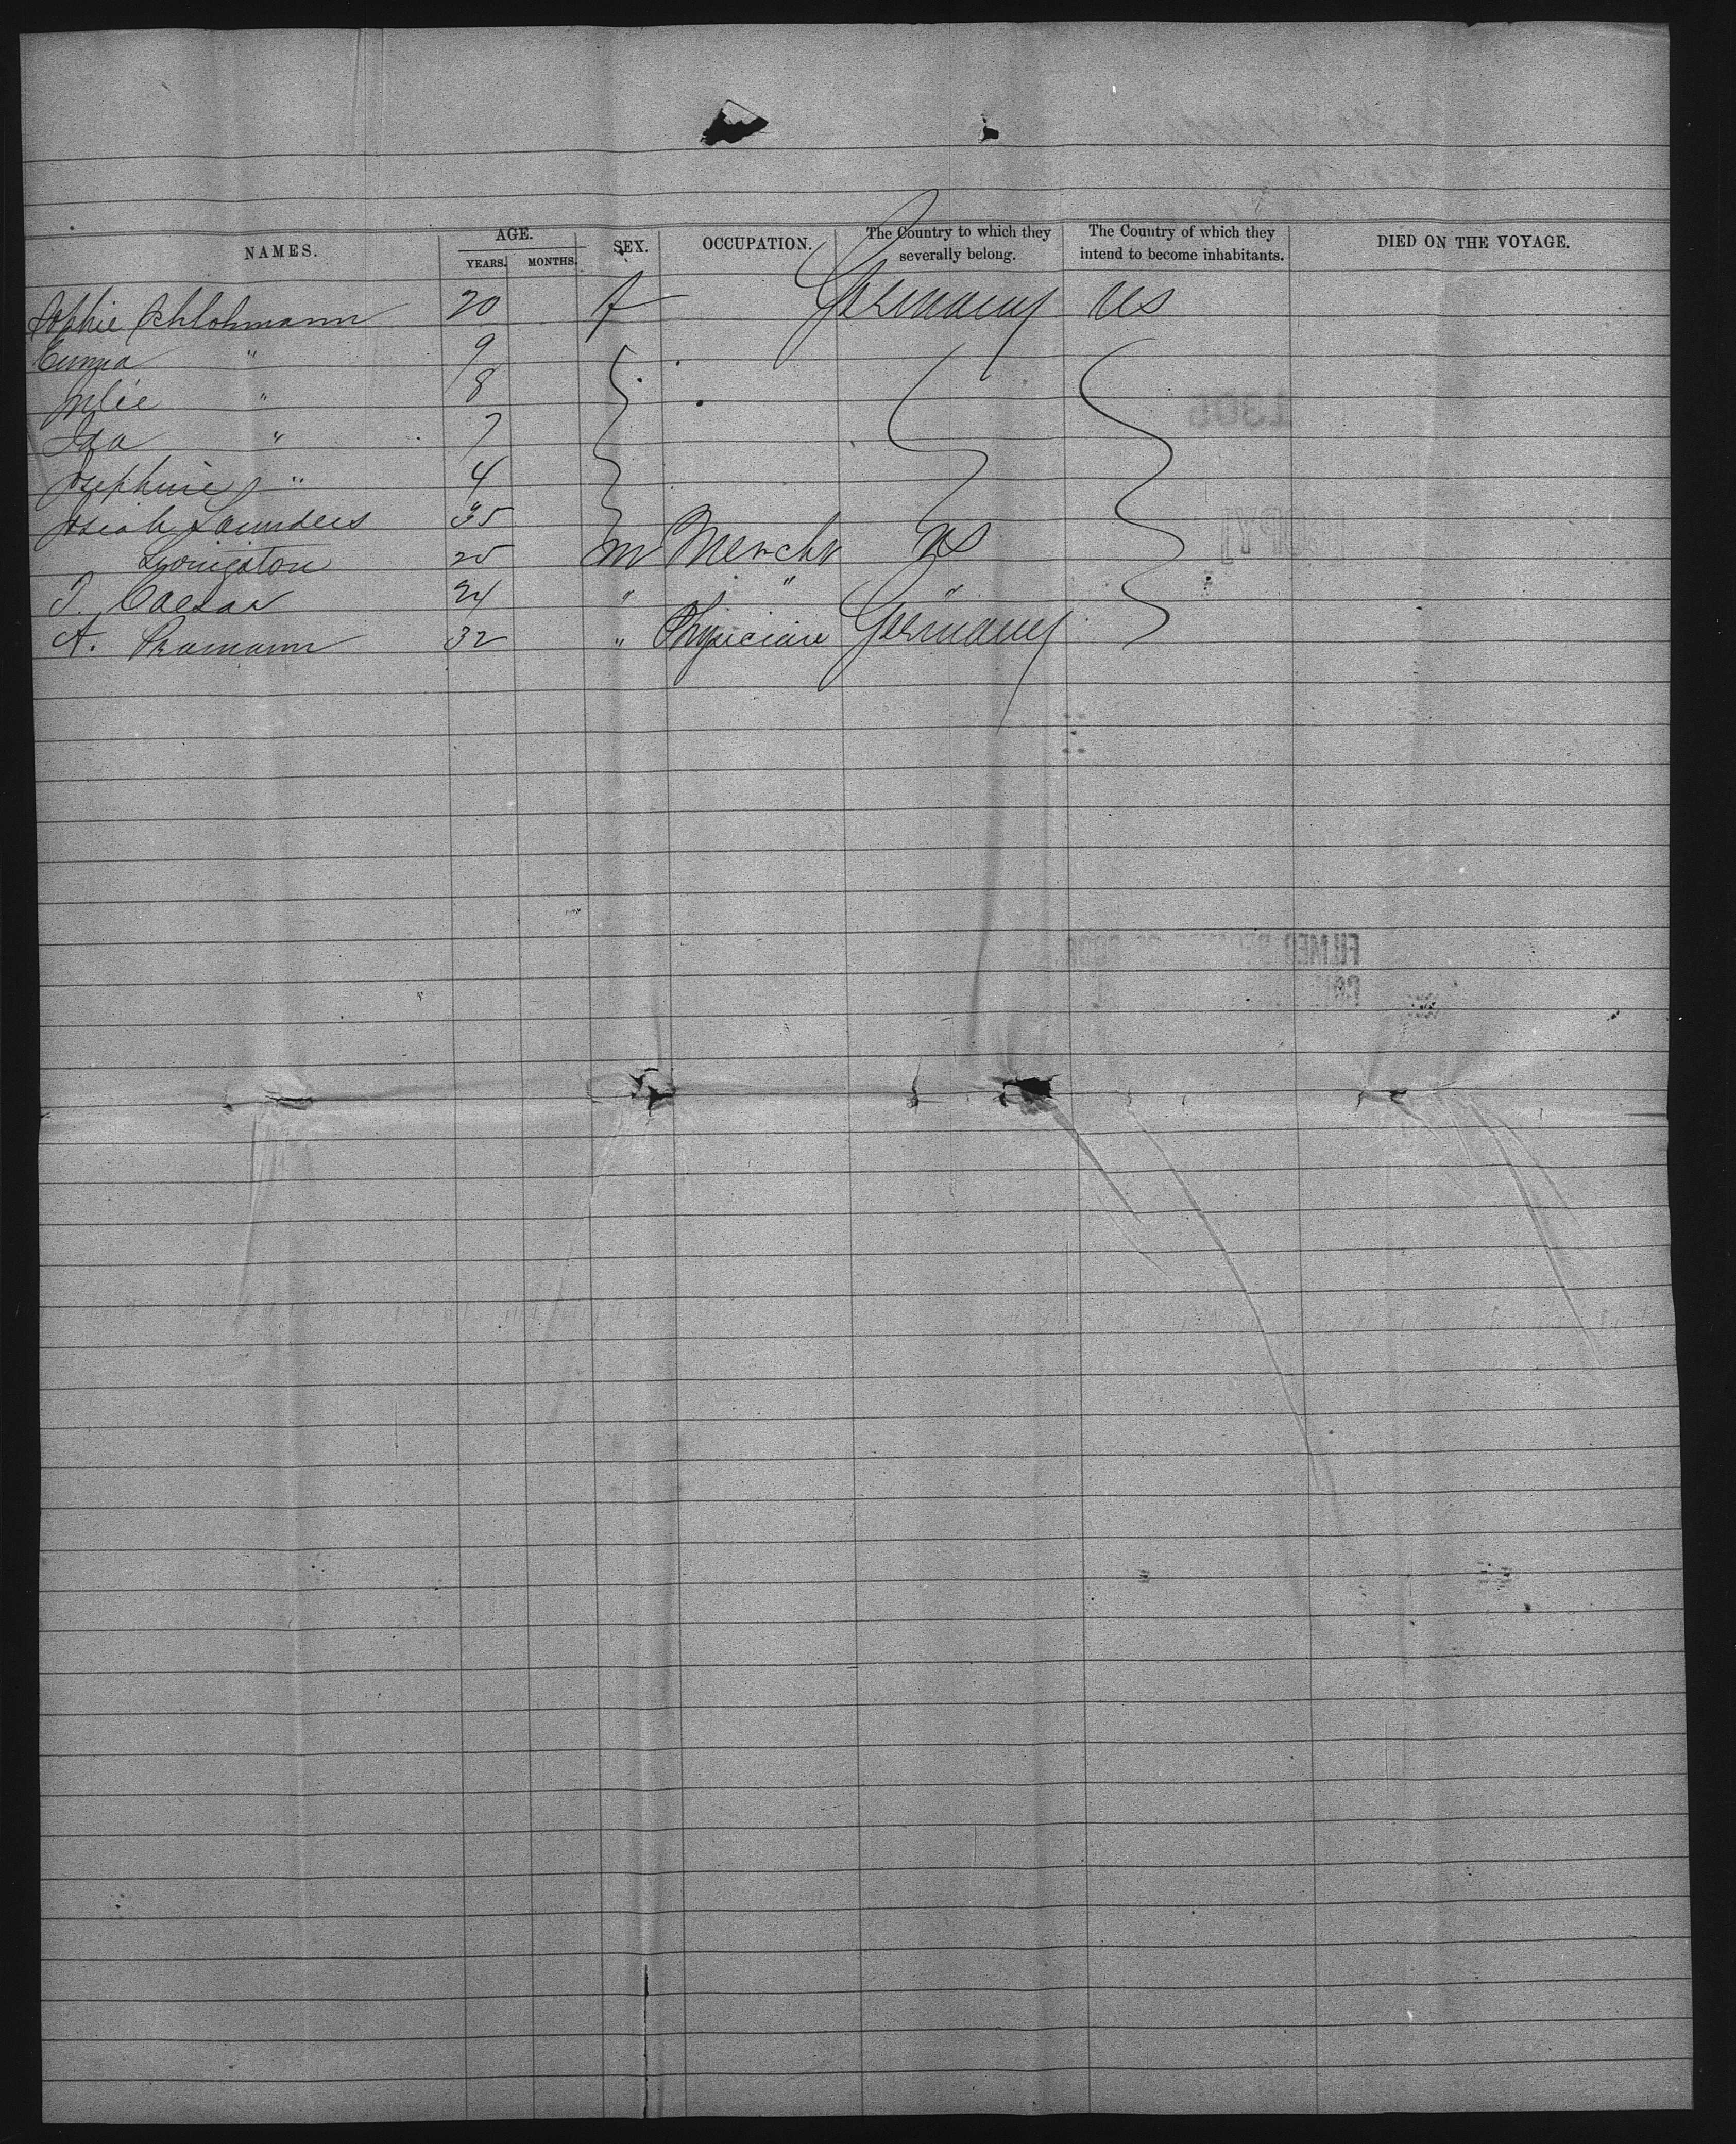 NAMES. AGE. YEARS. MONTHS. SEX. OCCUPATION. The Country to which they severally belong. The Country of which they intend to become inhabitants. DIED ON THE VOYAGE.
Sophie Schlohmann 20 f Germany US
Emma " 9
Julie " 8
Ida " 7
Josephine " 4
Saunders 35
Livingston 25 m Mercht US
J. Caesar 24 " " "
A. Ramann 32 " Physician Germany
1306
[COPY]
FILMED